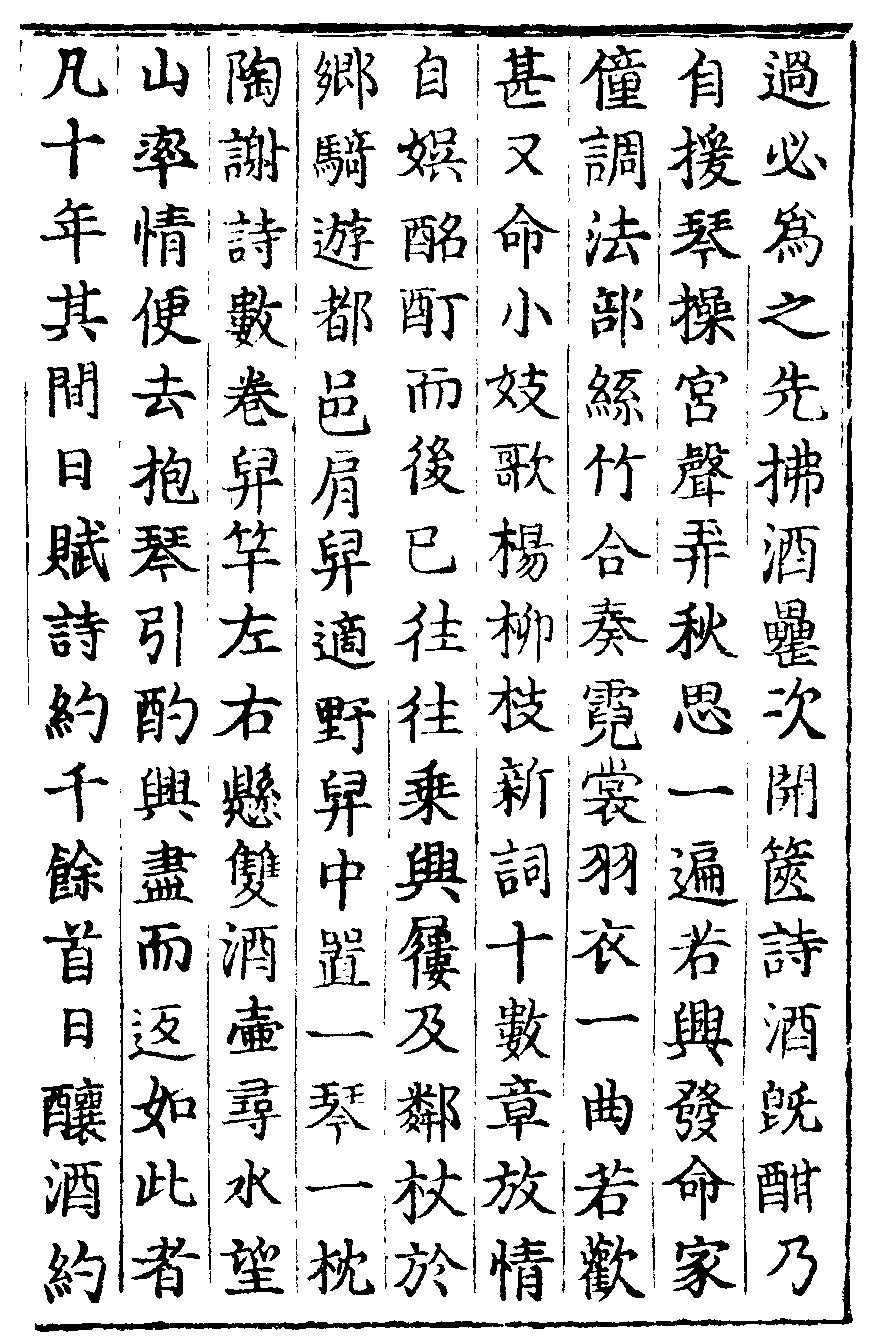 過必爲之先拂酒罍次開篋詩酒旣酣乃
自援琴操宮聲弄秋思一遍若興發命家
僮調法部絲竹合奏霓裳羽衣一曲若歡
甚又命小妓歌楊柳枝新詞十數章放情
自娯酩酊而後已往往乗興屨及鄰杖於
鄉騎遊都邑肩舁適野舁中置一琴一枕
陶謝詩數卷舁竿左右懸雙酒壷尋水望
山率情便去抱琴引酌興盡而返如此者
凡十年其間日賦詩約千餘首日釀酒約